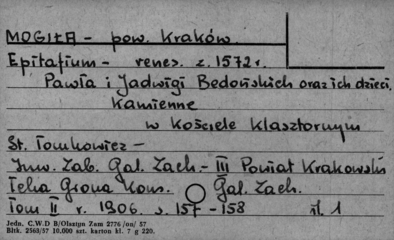 MOGIŁA - pow. Kraków.
Epitafium - renes. z. 1572 r.
Pawła i Jadwigi Bedońskich oraz ich dzieci,
Kamienne
w Kościele Klasztornym
St. Tomkowicz -
Inw. Zab. Gal. Zach. - III Powiat Krakowski
Teka Grona Kons. Gal. Zach.
Tom II r. 1906. s. 157-158 il. 1
Jedn. C.W.D B/Olsztyn Zam 2776/on/57
Bltk. 2563/57 10.000 szt. karton kl. 7 g 220.